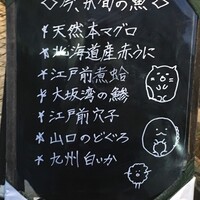 ◇今が旬の魚◇
＊天然本マグロ
＊北海道産赤うに
＊江戸前煮蛤
＊大坂湾の鯵
＊江戸前穴子
＊山口のどぐろ
＊九州白いか